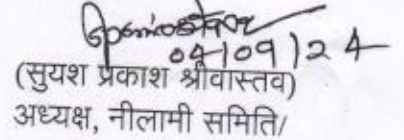 04/09/24
(सुयश प्रकाश श्रीवास्तव)
अध्यक्ष, नीलामी समिति/